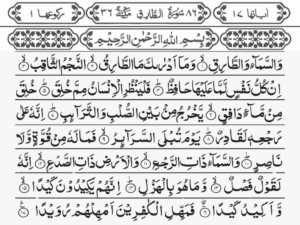 اٰیاتها ١٧ ٨٦ سُوْرَةُ الطَّارِقِ مَكِّيَّةٌ ٣٦ رکوعها ١
بِسْمِ اللّٰهِ الرَّحْمٰنِ الرَّحِيْمِ
وَالسَّمَآءِ وَالطَّارِقِ ۙ﴿١﴾ وَمَاۤ اَدْرٰىكَ مَا الطَّارِقُ ۙ﴿٢﴾ النَّجْمُ الثَّاقِبُ ۙ﴿٣﴾
اِنْ كُلُّ نَفْسٍ لَّمَّا عَلَيْهَا حَافِظٌ ؕ﴿٤﴾ فَلْيَنْظُرِ الْاِنْسَانُ مِمَّ خُلِقَ ؕ﴿٥﴾ خُلِقَ
مِنْ مَّآءٍ دَافِقٍ ۙ﴿٦﴾ يَّخْرُجُ مِنْۢ بَيْنِ الصُّلْبِ وَالتَّرَآئِبِ ؕ﴿٧﴾ اِنَّهٗ عَلٰى
رَجْعِهٖ لَقَادِرٌ ؕ﴿٨﴾ يَوْمَ تُبْلَى السَّرَآئِرُ ۙ﴿٩﴾ فَمَا لَهٗ مِنْ قُوَّةٍ وَّلَا
نَاصِرٍ ؕ﴿١٠﴾ وَالسَّمَآءِ ذَاتِ الرَّجْعِ ۙ﴿١١﴾ وَالْاَرْضِ ذَاتِ الصَّدْعِ ۙ﴿١٢﴾ اِنَّهٗ
لَقَوْلٌ فَصْلٌ ۙ﴿١٣﴾ وَّمَا هُوَ بِالْهَزْلِ ؕ﴿١٤﴾ اِنَّهُمْ يَكِيْدُوْنَ كَيْدًا ۙ﴿١٥﴾
وَّاَكِيْدُ كَيْدًا ۖ﴿١٦﴾ فَمَهِّلِ الْكٰفِرِيْنَ اَمْهِلْهُمْ رُوَيْدًا ﴿١٧﴾